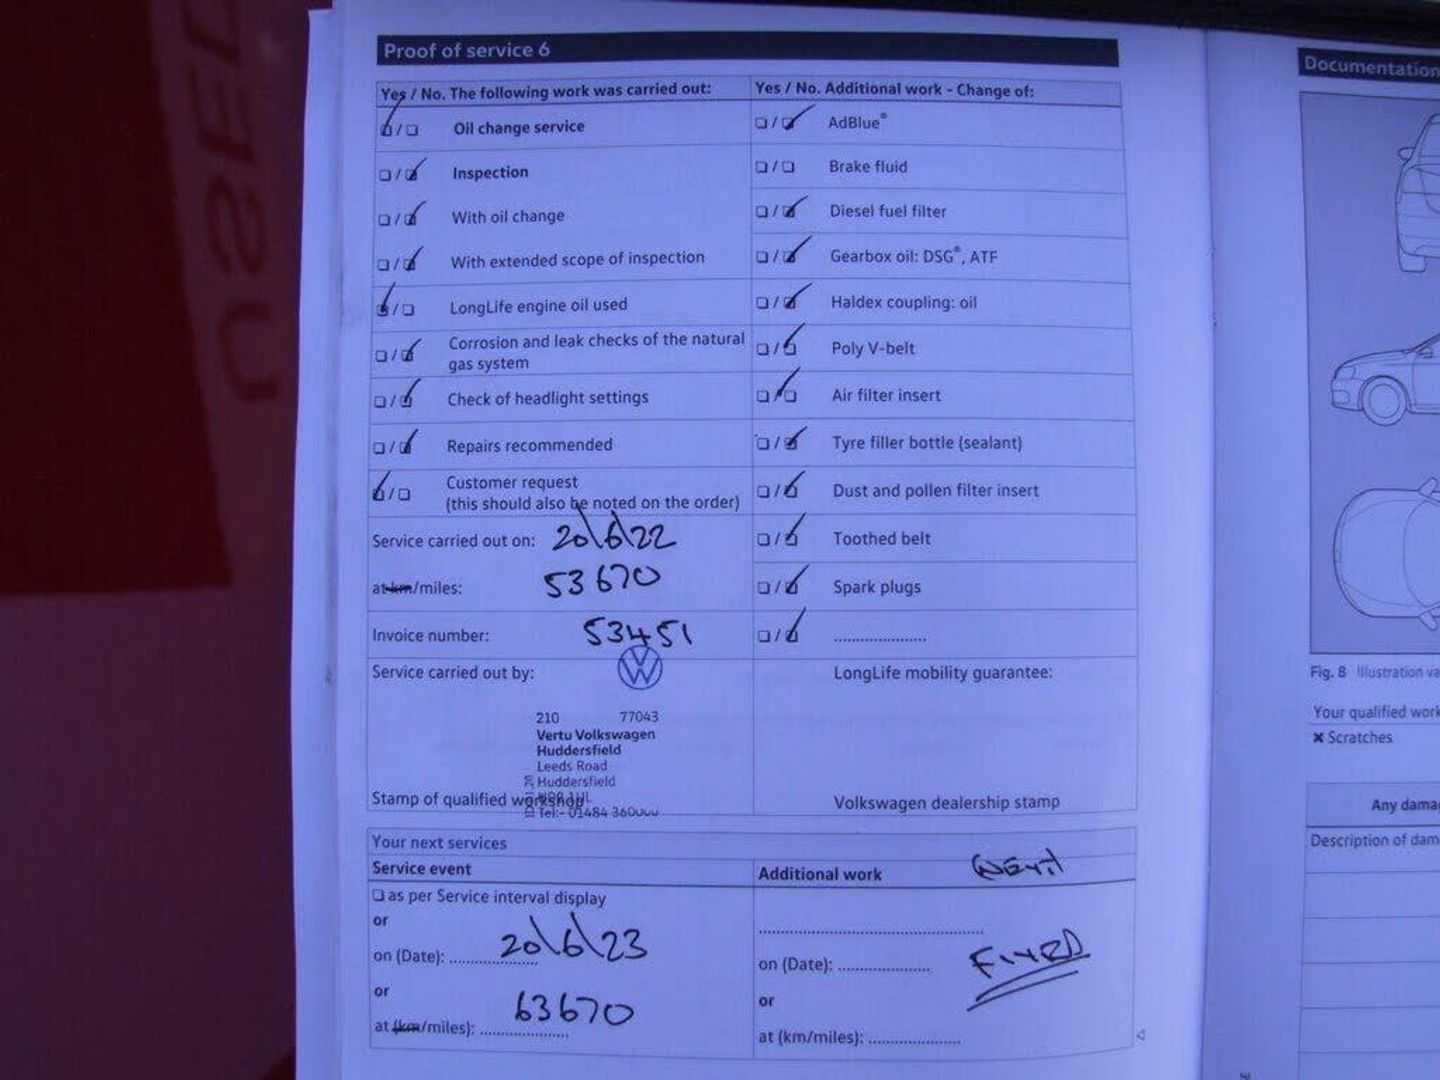 Proof of service 6
Yes / No. The following work was carried out:
Oil change service
Inspection
With oil change
With extended scope of inspection
LongLife engine oil used
Corrosion and leak checks of the natural
gas system
Check of headlight settings
Repairs recommended
Customer request
(this should also be noted on the order)
Service carried out on: 20\6\22
at km/miles: 53670
Invoice number: 53451
Service carried out by:
210 77043
Vertu Volkswagen
Huddersfield
Leeds Road
Huddersfield
Tel:- 01484 360000
Stamp of qualified workshop
Yes / No. Additional work - Change of:
AdBlue®
Brake fluid
Diesel fuel filter
Gearbox oil: DSG®, ATF
Haldex coupling: oil
Poly V-belt
Air filter insert
Tyre filler bottle (sealant)
Dust and pollen filter insert
Toothed belt
Spark plugs
....................
LongLife mobility guarantee:
Volkswagen dealership stamp
Your next services
Service event
as per Service interval display
or
on (Date): 20\6\23
or
at (km/miles): 63670
Additional work
on (Date): ....................
FIXED
or
at (km/miles): ....................
Documentation
Fig. 8 Illustration va
Your qualified work
× Scratches
Any dama
Description of dam